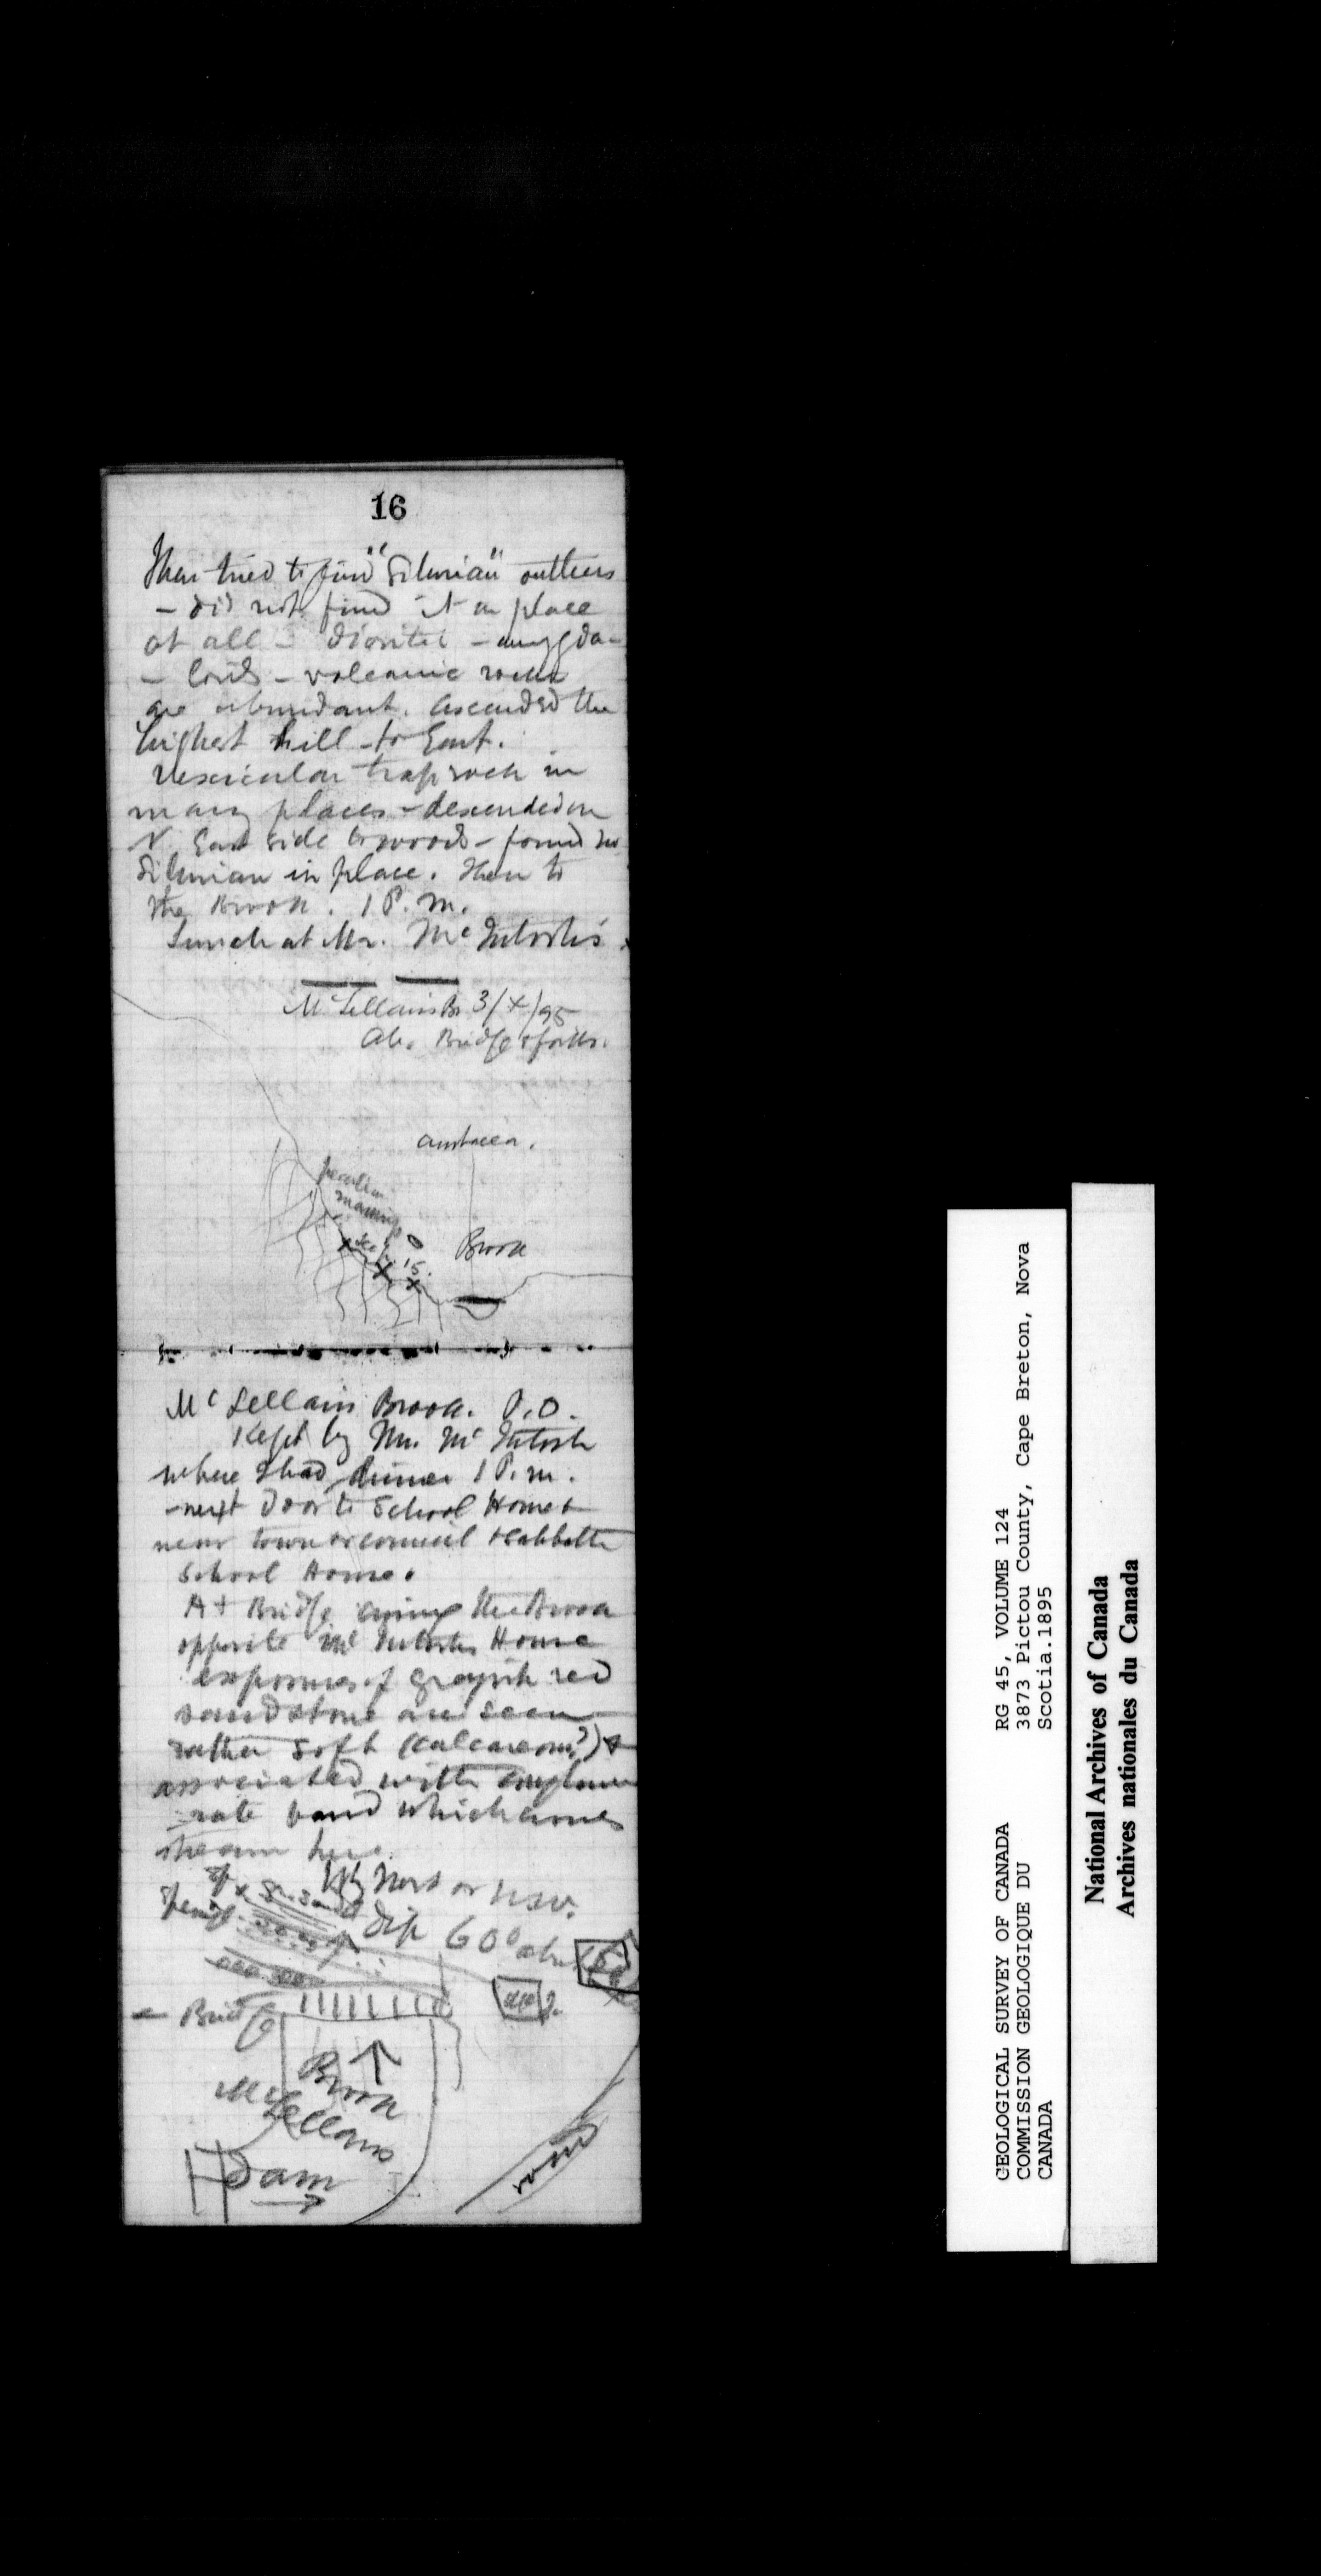 16
Then tried to find "Silurian" outliers
- did not find it in place
at all - diorites - amygda-
- loids - volcanic rocks
are abundant. Ascended the
highest hill to East.
Vesicular trap rock in
many places - descended on
N. East side to woods - found no
Silurian in place. Then to
the Brook. 1 P.M.
Lunch at Mr. McIntosh's.
McLellan's Br 3/X/95
Abo. Bridge & forks.
peculiar
15.
Brook
McLellan's Brook. P.O.
Kept by Mr. McIntosh
where I had dinner 1 P.m.
- next door to School House &
near town or council & Sabbath
School House.
At Bridge crossing the Brook
opposite McIntosh's House
exposures of greyish red
sandstone are seen
rather soft (calcareous?) &
associated with conglome
rate band which crosses
stream here.
dip 60°
- Bridge
Brook
McLellans
Dam
road
GEOLOGICAL SURVEY OF CANADA
COMMISSION GEOLOGIQUE DU
CANADA
RG 45, VOLUME 124
3873 Pictou County, Cape Breton, Nova
Scotia.1895
National Archives of Canada
Archives nationales du Canada